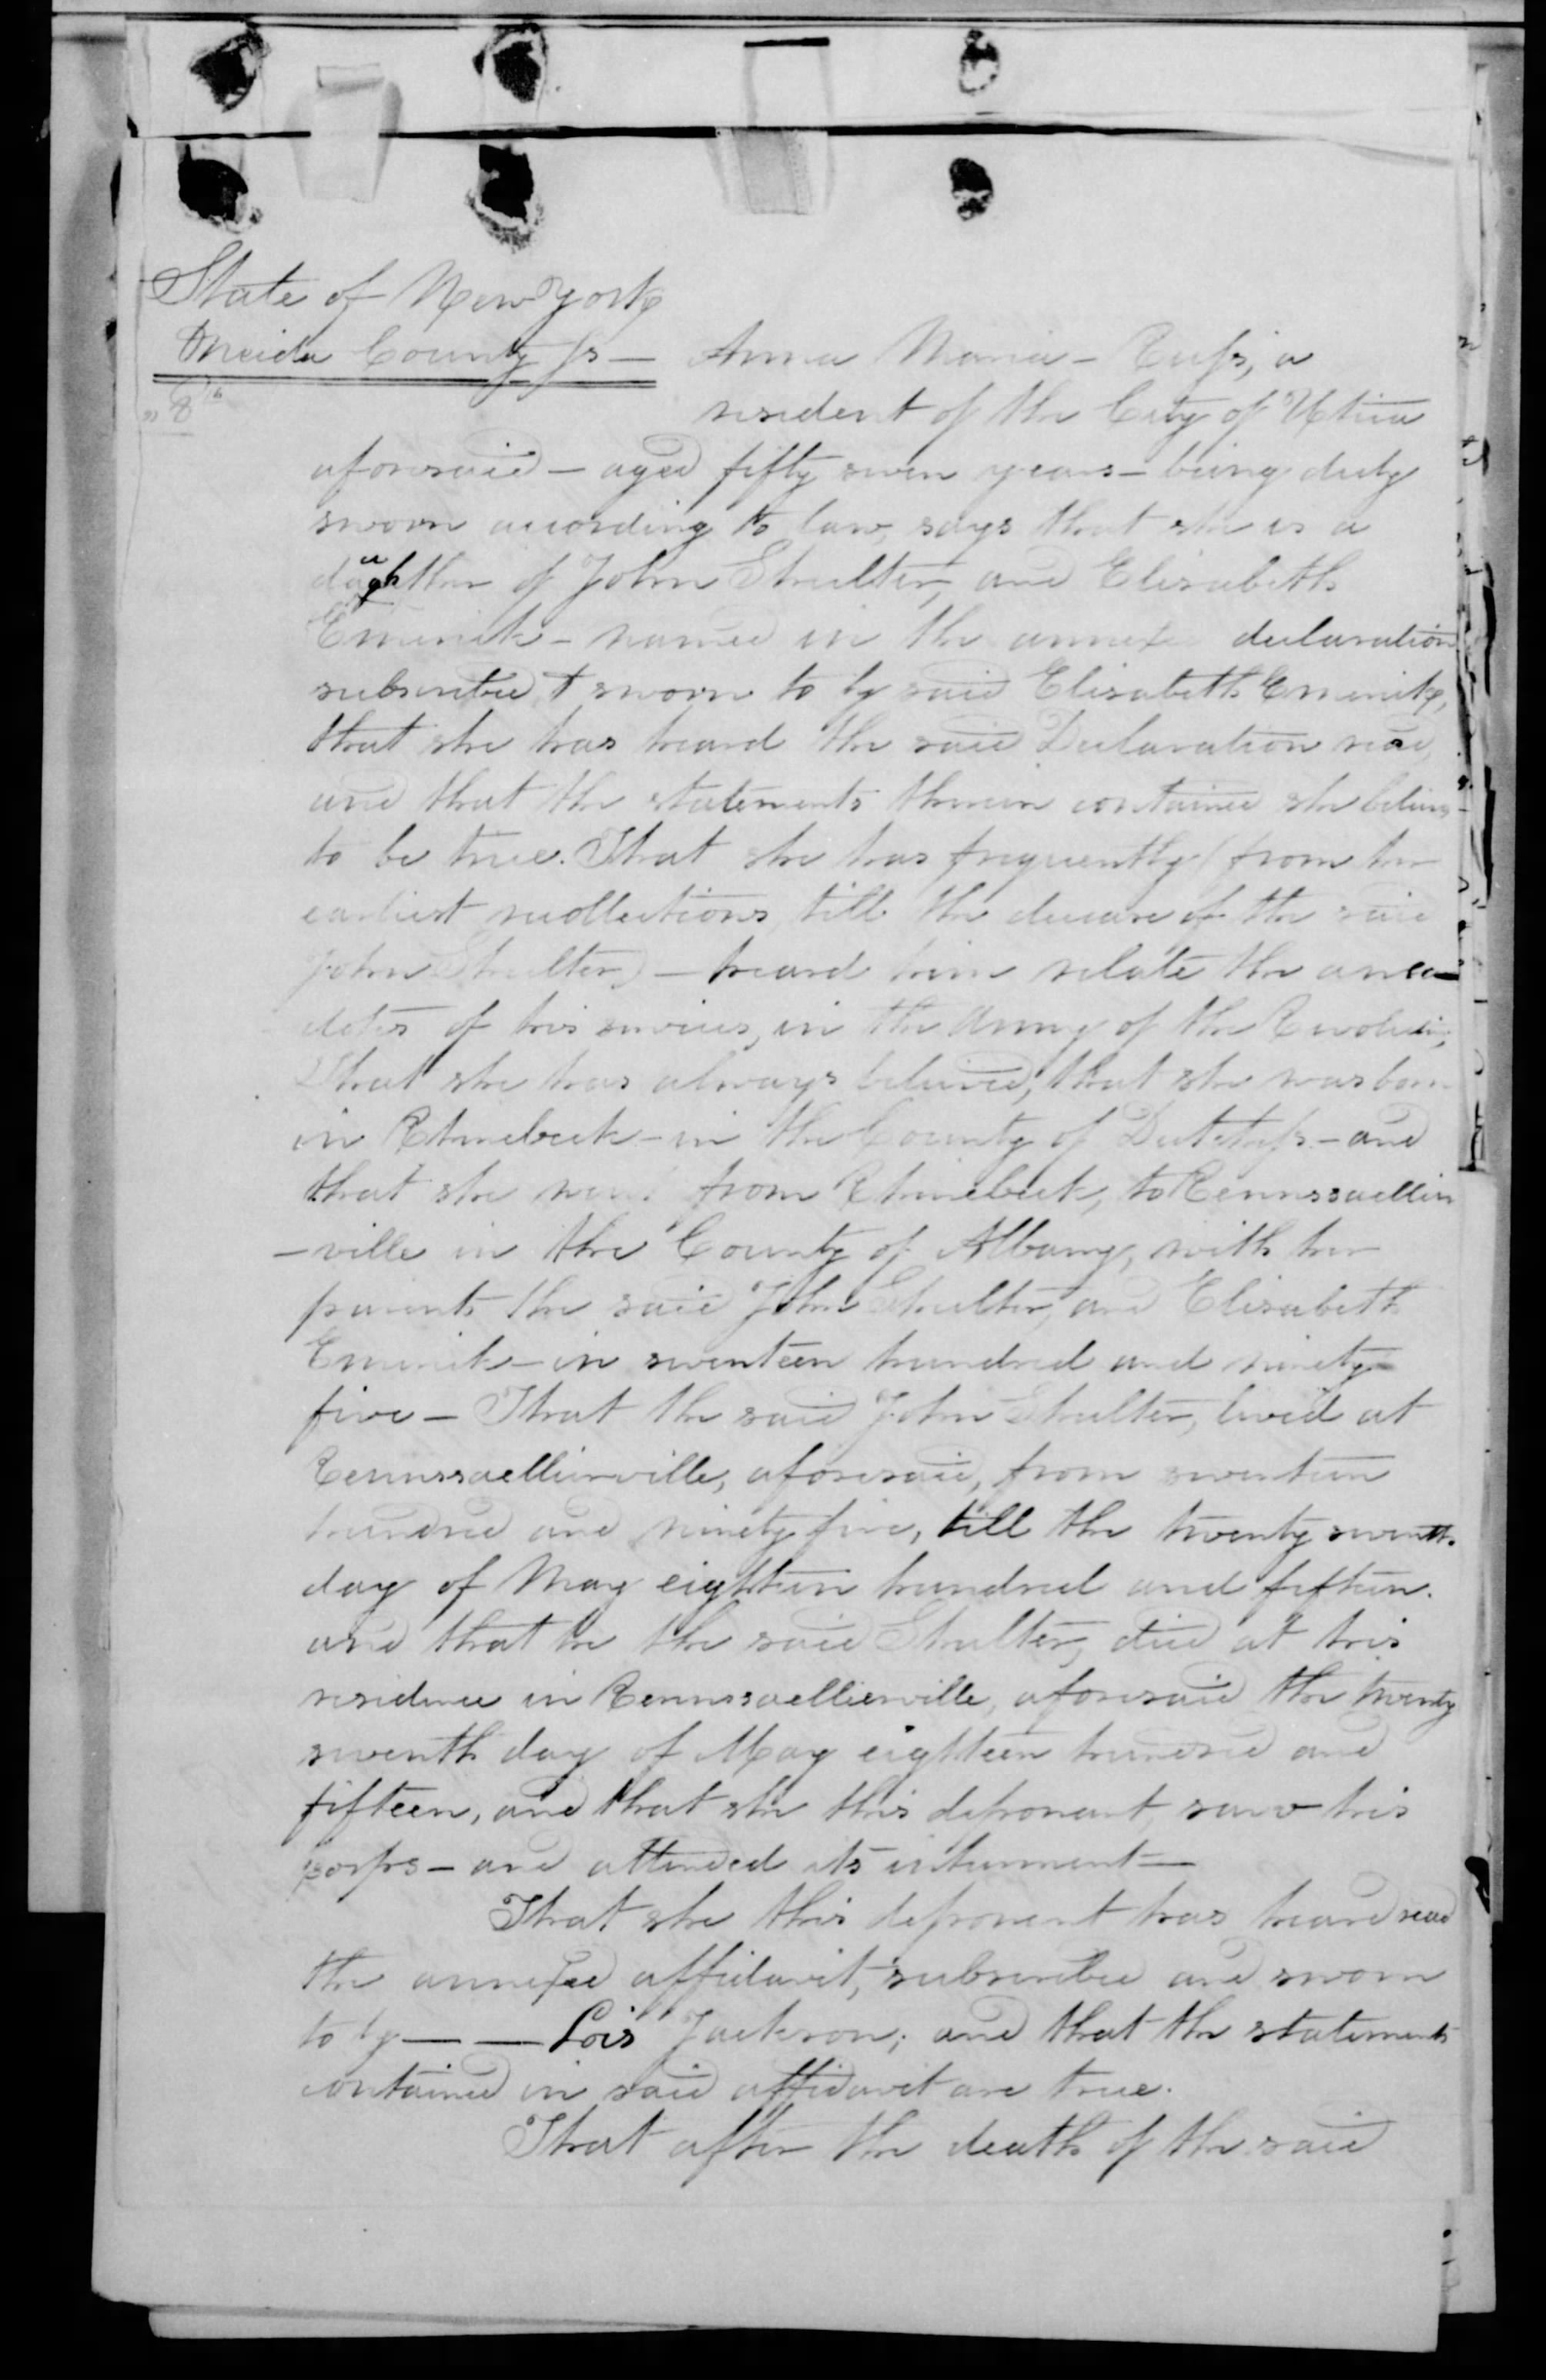 State of New York
Oneida County ss — Anna Maria – Russ, a
"8"
resident of the City of Utica
aforesaid – aged fifty seven years – being duly
sworn according to law, says that she is a
daughter of John Shulter, and Elisabeth
Emerick – named in the annexed declaration
subscribed & sworn to by said Elisabeth Emerick,
that she has heard the said Declaration read,
and that the statements therein contained she believes
to be true. That she has frequently (from her
earliest recollections, till the decease of the said
John Shulter) – heard him relate the anec–
dotes of his services, in the Army of the Revolution;
That she has always believed, that she was born
in Rhinebeck – in the County of Dutchess – and
that she from Rhinebeck, to Rennssaellier
–ville in the County of Albany, with her
parents the said John Shulter, and Elisabeth
Emerick – in seventeen hundred and ninety
five – That the said John Shulter, lived at
Rennssaellierville, aforesaid, from seventeen
hundred and ninety five, till the twenty seventh
day of May eighteen hundred and fifteen.
and that he the said Shulter, died at his
residence in Rennssaellierville, aforesaid the twenty
seventh day of May eighteen hundred and
fifteen, and that she this deponant, saw his
corps – and attended its interment —
That she this deponent has heard read
the annexed affidavit, subscribed and sworn
to by — — Lois Jackson; and that the statements
contained in said affidavit are true.
That after the death of the said